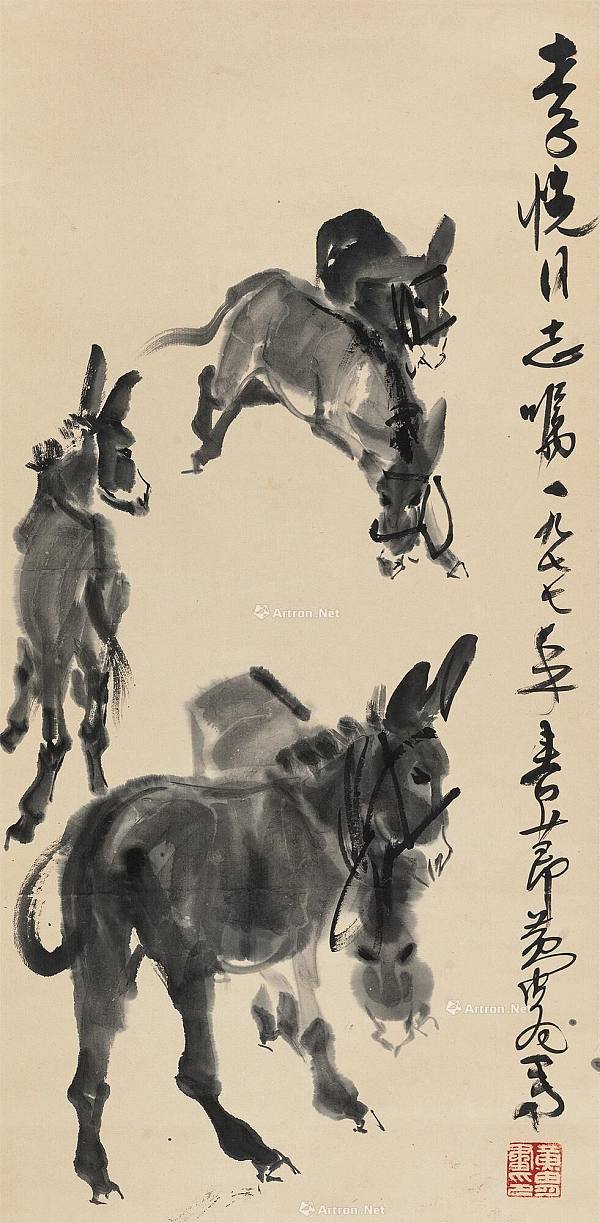 李悦同志嘱一九七七年春节黄胄写
黄胄
画印
Artron.Net
Artron.Net
Artron.Net